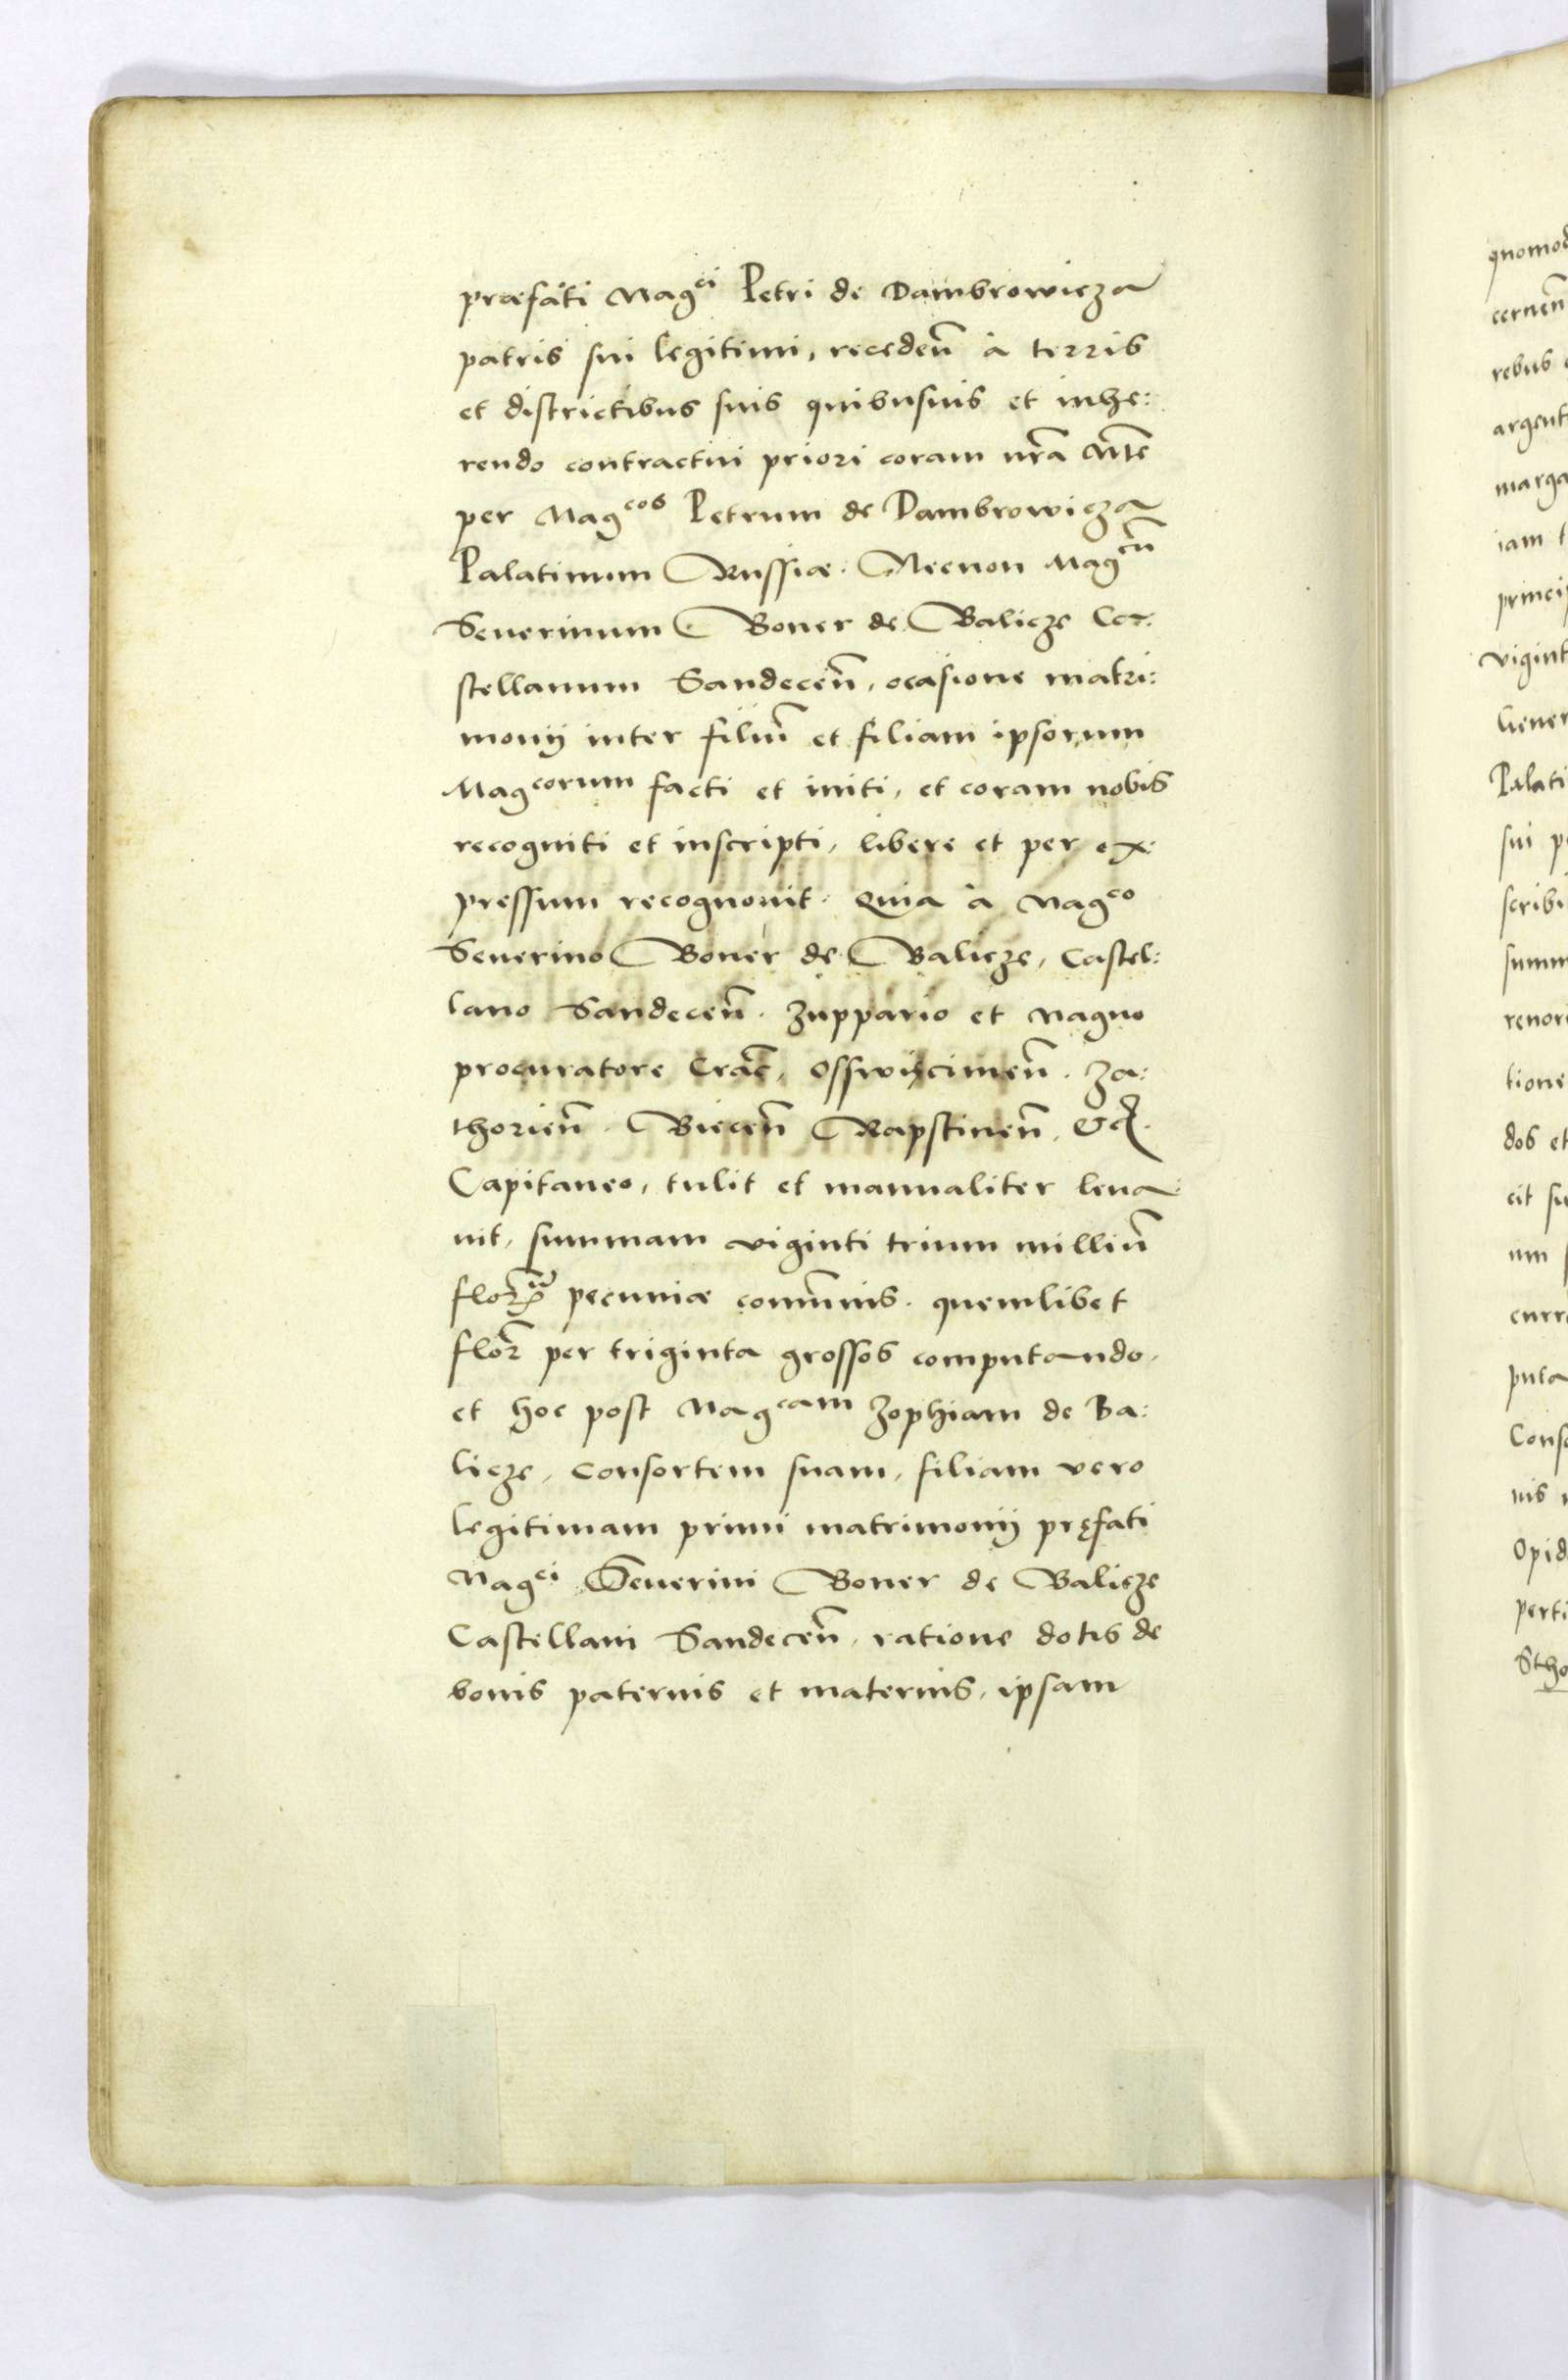 præfati Mag^ci Petri de Dambrowicza
patris sui legitimi, recedeñ à terris
et districtibus suis quibusuis et inhe:
rendo contractui priori coram nr̃a Mte
per Mag^cos Petrum de Dambrowicza
Palatinum Russiæ. Necnon Mag^cũ
Seuerinum Boner de Balicze Ca:
stellanum Sandeceñ, ocasione matri:
monij inter filiũ et filiam ipsorum
Mag^corum facti et initi, et coram nobis
recogniti et inscripti, libere et per ex:
pressum recognouit. Quia à Mag^co
Seuerino Boner de Balicze, Castel:
lano Sandeceñ. Zuppario et Magno
procuratore Crac̃, Osswiscimeñ. Za:
thorieñ. Bieceñ Rapstineñ, &c.
Capitaneo, tulit et manualiter leua:
uit, summam viginti trium milliũ
florꝝ pecuniæ com̃unis. quemlibet
flor̃ per triginta grossos computando,
et hoc post Mag^cam Zophiam de Ba:
licze, consortem suam, filiam vero
legitimam primi matrimonij pręfati
Mag^ci Seuerini Boner de Balicze
Castellani Sandeceñ, ratione dotis de
bonis paternis et maternis, ipsam
quomod
cerneñ
rebus
argent
marga
iam
princip
vigint
Gener
Palati
sui p
scribi
summ
renor
tione
dos et
cit su
um
curr
puta
Conso
nis
Opid
perti
Stho